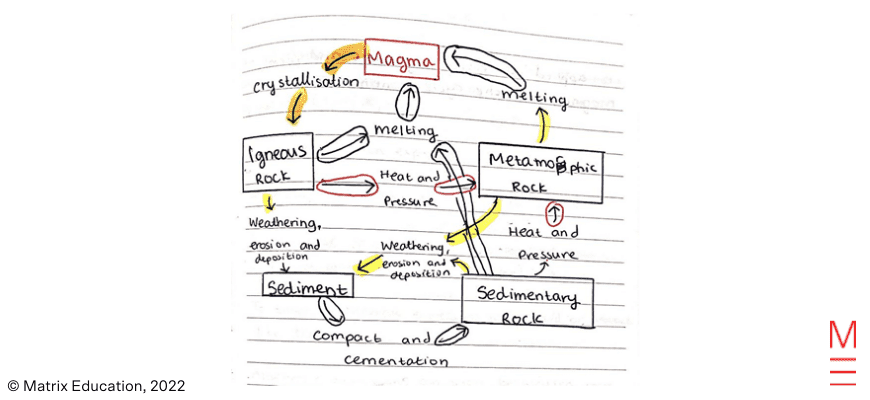 Magma
crystallisation
melting
melting
Igneous
Rock
Heat and
Pressure
Metamorphic
Rock
Weathering,
erosion and
deposition
Weathering,
erosion and
deposition
Heat and
Pressure
Sediment
Sedimentary
Rock
Compact and
cementation
© Matrix Education, 2022
M